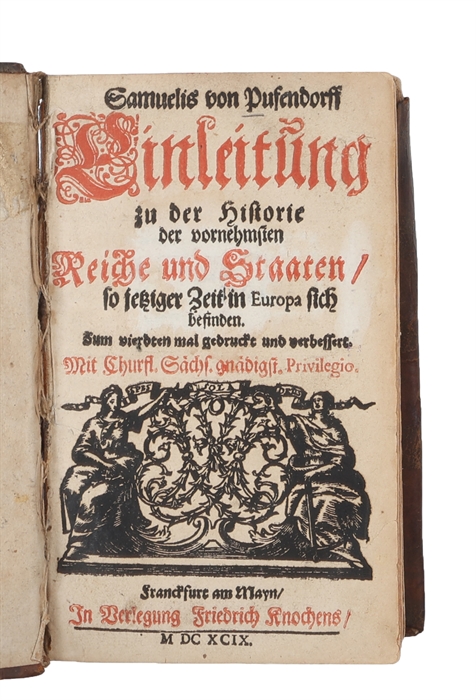 Samuelis von Pufendorff
Einleitung
zu der Historie
der vornehmsten
Reiche und Staaten/
so jetziger Zeit in Europa sich
befinden.
Zum vierdten mal gedruckt und verbessert.
Mit Churfl. Sächs. gnädigst. Privilegio.
Franckfurt am Mayn/
In Verlegung Friedrich Knochens/
M DC XCIX.